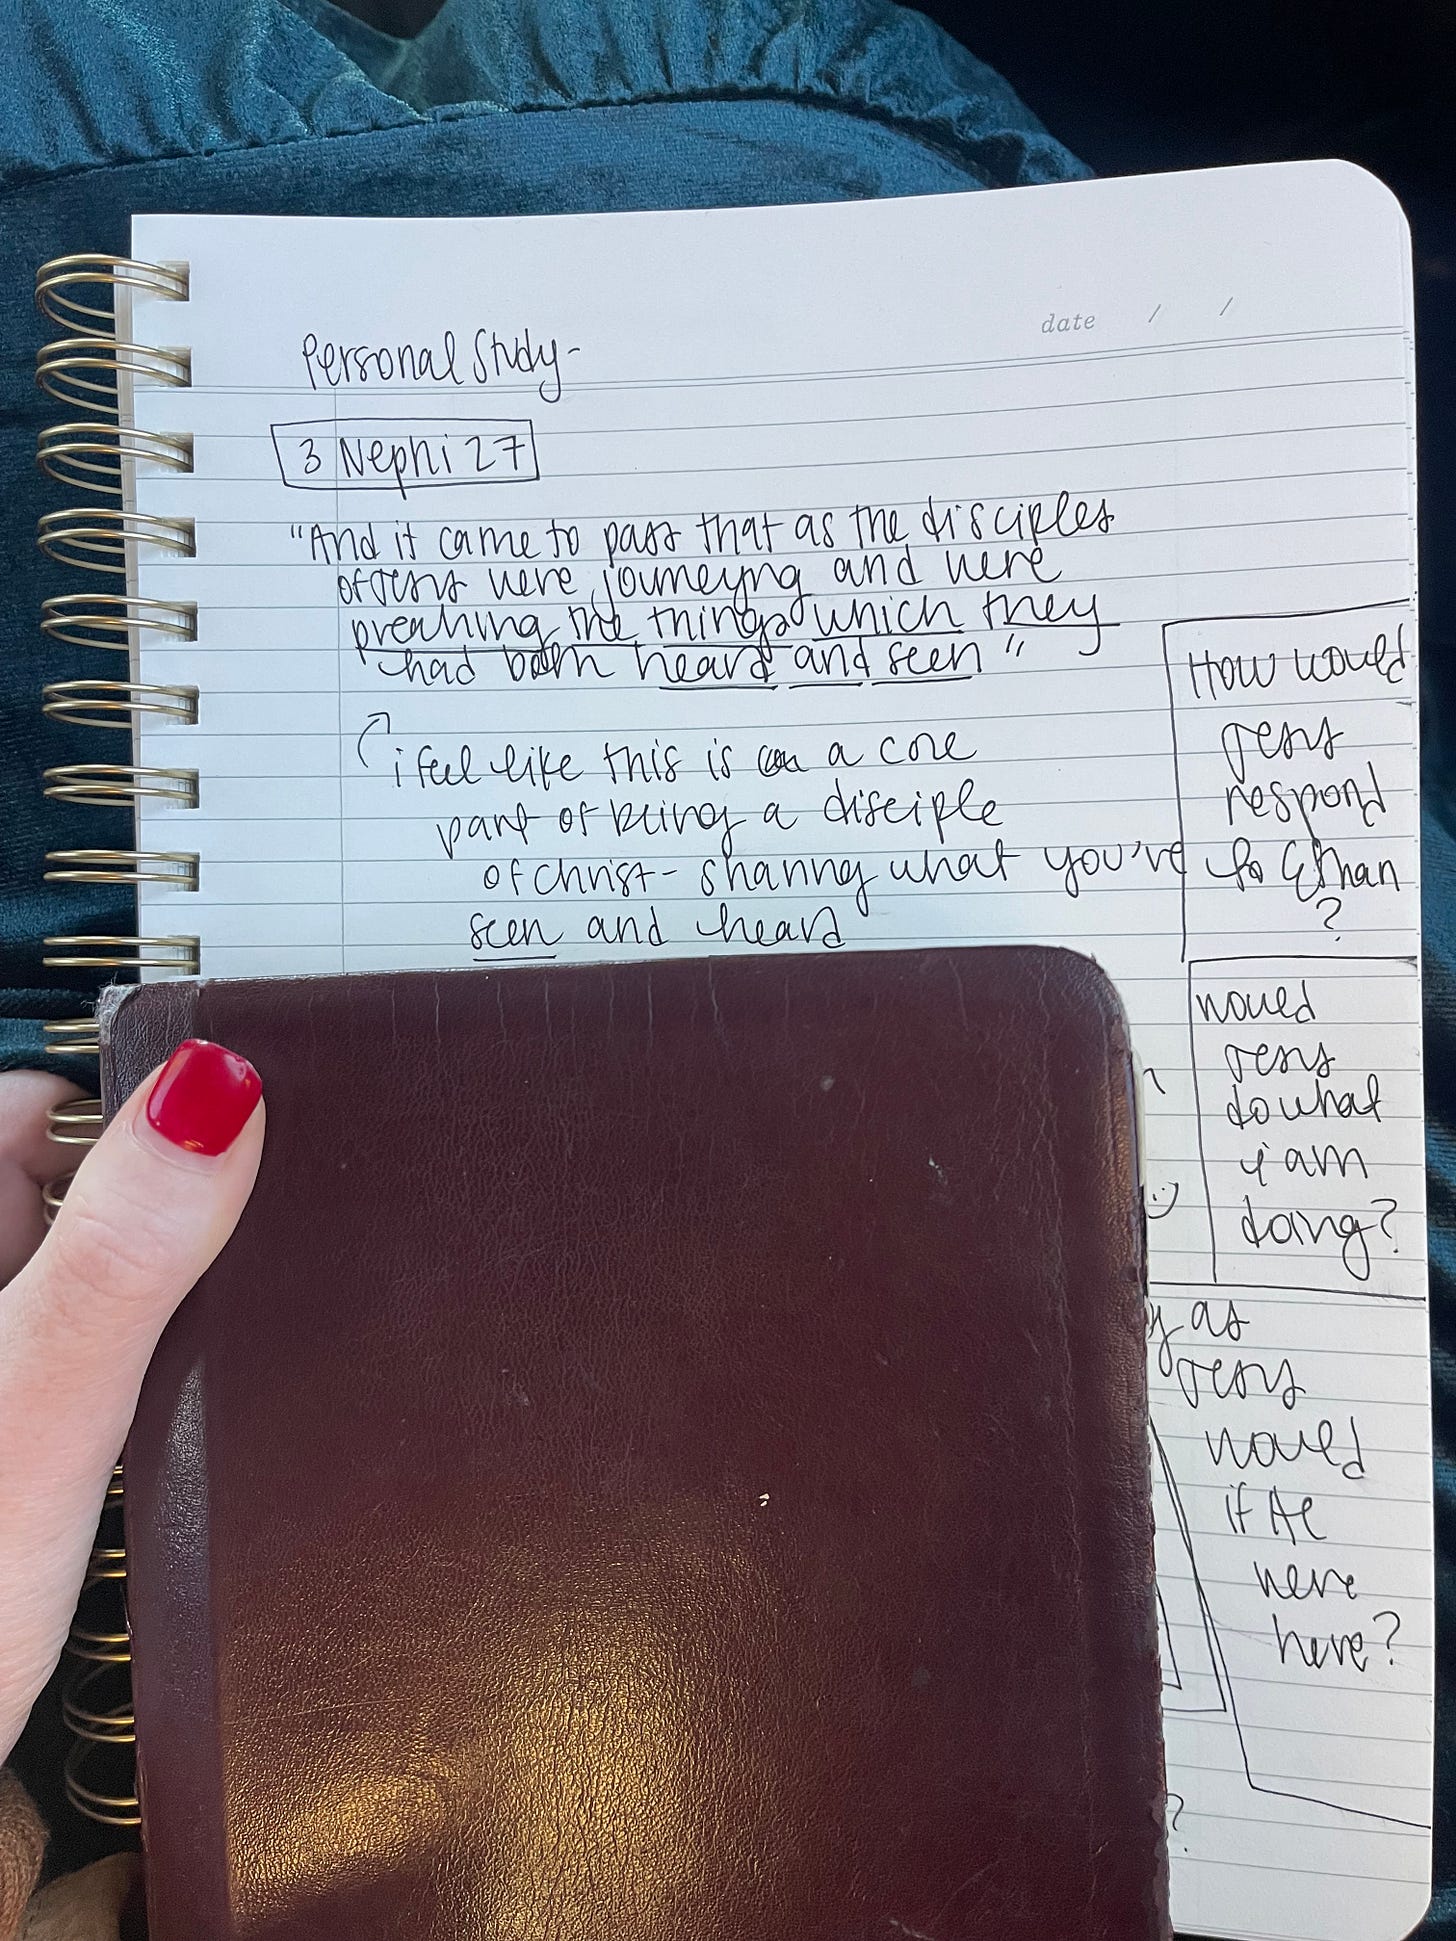 date / /
Personal Study-
3 Nephi 27
"And it came to pass that as the disciples
of Jesus were journeying and were
preaching the things which they
had been heard and seen"
i feel like this is a core
part of being a disciple
of Christ- sharing what you've
seen and heard
How would
Jesus
respond
to Ethan
?
would
Jesus
do what
i am
doing?
y as
Jesus
would
if He
were
here?
?